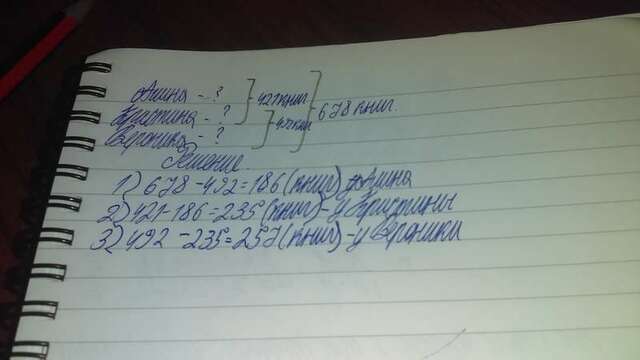 Амина - ? 421 книг
Кристина - ? 678 книг.
Вероника - ? 492 кн
Решение.
1) 678 - 492 = 186 (книг) Амина
2) 421 - 186 = 235 (книг) - у Кристины
3) 492 - 235 = 257 (книг) - у Вероники